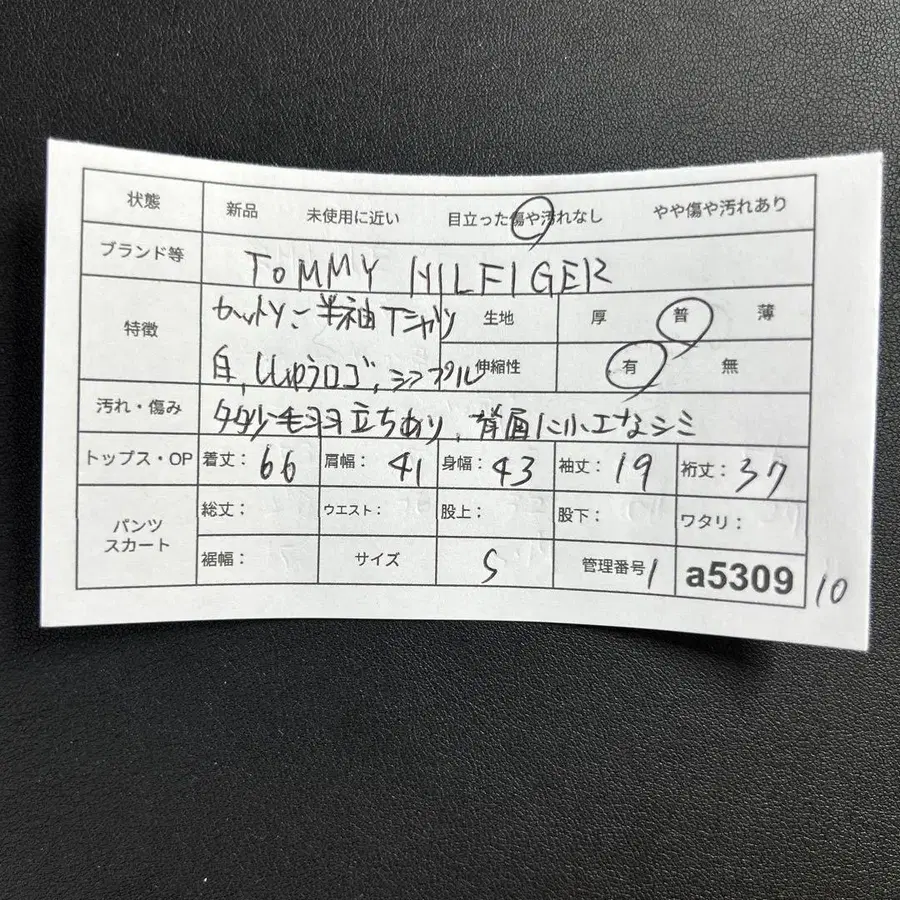 状態 新品 未使用に近い 目立った傷や汚れなし やや傷や汚れあり
ブランド等 TOMMY HILFIGER
特徴 カットソー 半袖Tシャツ 生地 厚 普 薄
白,ししゅうロゴ,シンプル 伸縮性 有 無
汚れ・傷み 多少毛羽立ちあり、背面に小さなシミ
トップス・OP 着丈:66 肩幅:41 身幅:43 袖丈:19 裄丈:37
パンツ スカート 総丈: ウエスト: 股上: 股下: ワタリ:
裾幅: サイズ S 管理番号 1 a5309 10